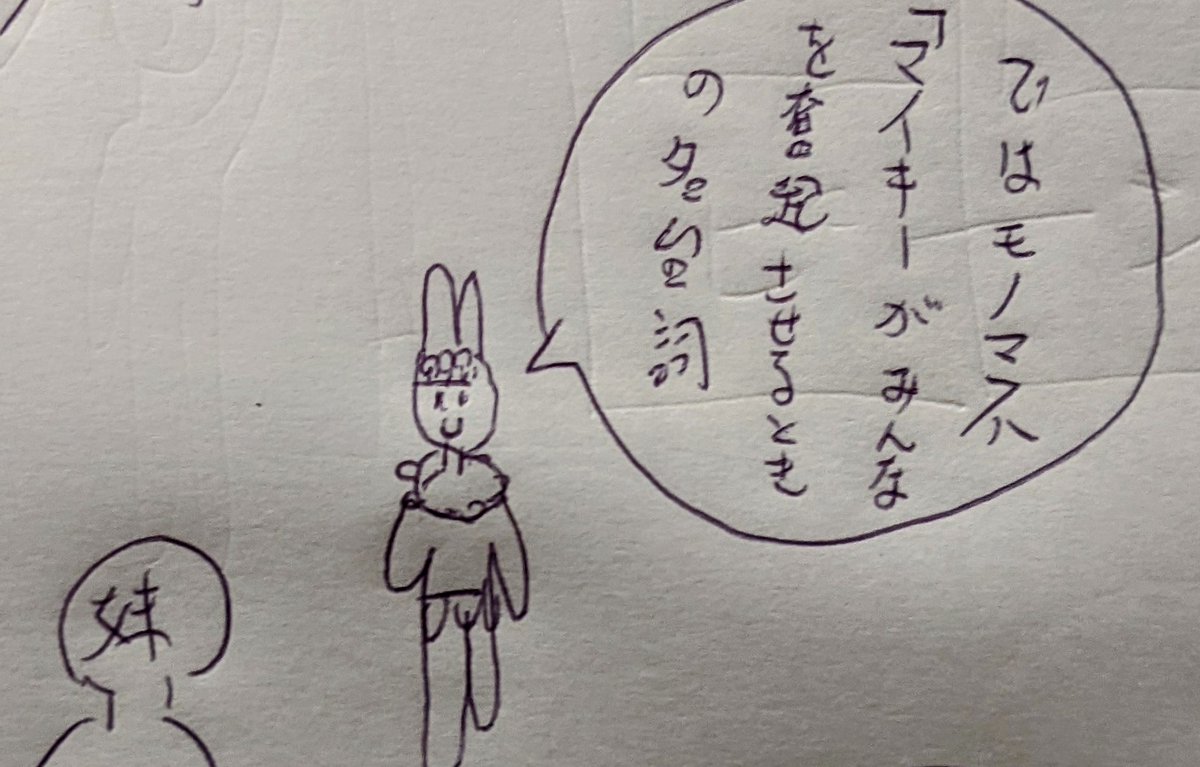 ではモノマネ
「マイキーがみんな
を奮起させるとき
の名台詞
妹